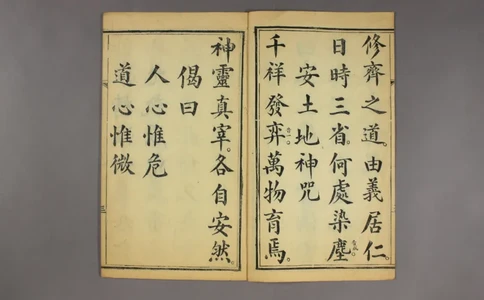 修齊之道。由義居仁。
日時三省。何處染塵
安土地神咒
千祥發弈萬物育焉。
神靈真宰。各自安然
偈曰
人心惟危
道心惟微